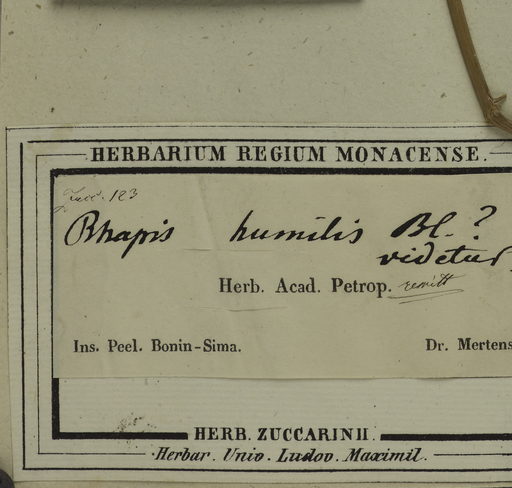 HERBARIUM REGIUM MONACENSE.
Zucc. 123
Rhapis humilis Bl.?
videtur
Herb. Acad. Petrop. remitt
Ins. Peel. Bonin-Sima. Dr. Mertens
HERB. ZUCCARINII.
Herbar. Univ. Ludov. Maximil.